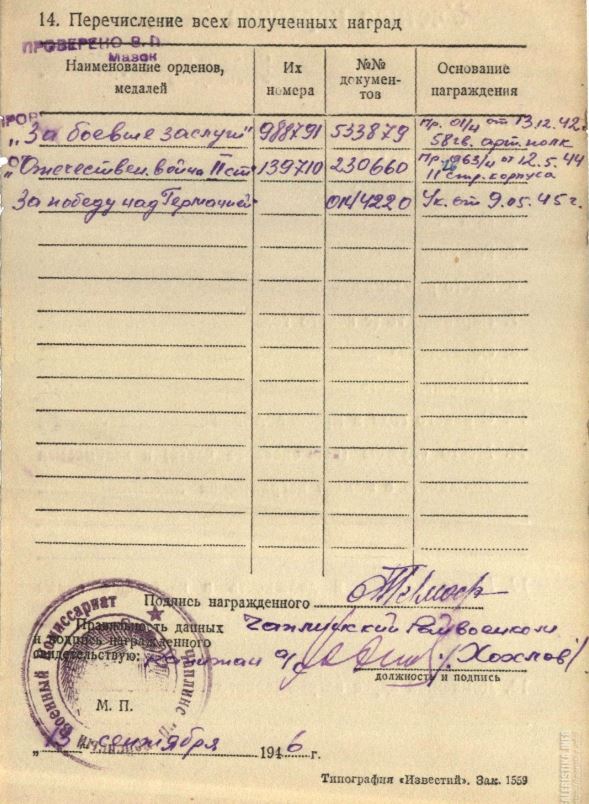 14. Перечисление всех полученных наград
ПРОВЕРЕНО В.П.
Мазок
Наименование орденов, медалей
Их номера
№№ докумен-тов
Основание награждения
ПРОВ
„За боевые заслуги" 988791 533879 Пр. 01/н от 13.12.42г.
58 гв. арт. полк
„Отечествен. война II ст" 139710 230660 Пр. 063/н от 12.5.44
11 стр. корпуса
За победу над Германией 0144220 Ук. от 9.05.45 г.
Подпись награжденного
Правильность данных
и подпись награжденного
свидетельствую: капитан а/с /Хохлов/
должность и подпись
Военный Комиссариат
М. П.
„13" сентября 1946 г.
Типография «Известий». Зак. 1559